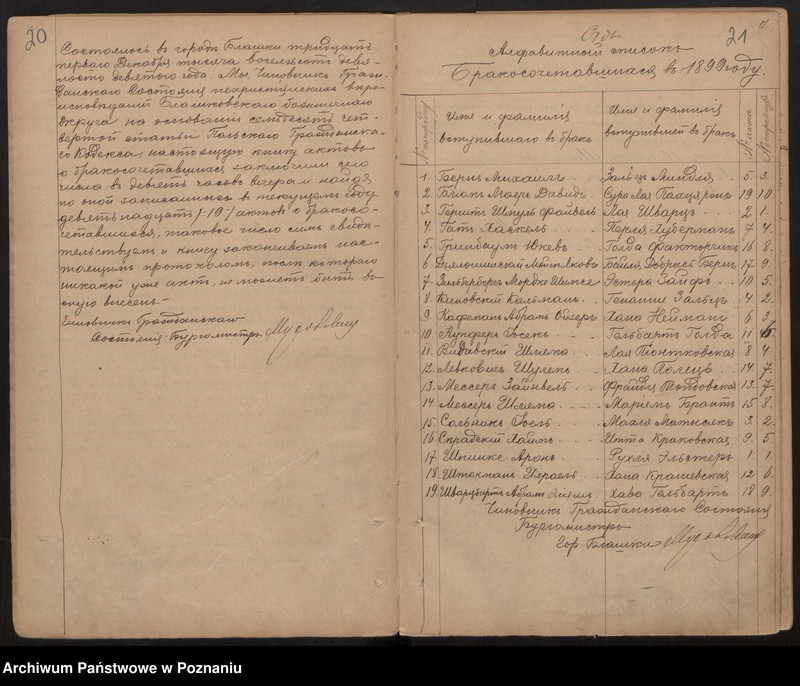 20
Состоялось въ городѣ Блашки тридцать
перваго Декабря тысяча восемьсотъ девя-
носто девятого года. Мы, Чиновникъ Граж-
данскаго Состоянія нехристіанскихъ вѣро-
исповѣданій Блашковскаго божничнаго
округа на основаніи семьдесятъ чет-
вертой статьи Польскаго Гражданска-
го Кодекса, настоящую книгу актовъ
о бракосочетавшихся заключили сего
числа въ девять часовъ вечера найдя
по оной записанныхъ въ текущемъ году
девятнадцать /:19:/ актовъ о бракосо-
четавшихся, таковое число симъ свидѣ-
тельствуемъ и книгу заканчиваемъ нас-
тоящимъ протоколомъ, послѣ котораго
никакой уже актъ, не можетъ быть въ
оную внесенъ.-
Чиновникъ Гражданскаго
Состоянія Бургомистръ
21
Алфавитный списокъ
Бракосочетавшихся въ 1899 году.
Имя и фамилія вступившаго въ бракъ
Имя и фамилія вступившей въ бракъ
1. Бернъ Михаилъ Зальцъ Миндля 5. 3.
2. Мееръ Давидъ Сура Лая 19 10.
3. Шмуль Файвель Лая Шварцъ 2 1.
4. Хаскель Перля Хуберманъ 7 4.
5. Гринбаумъ Голда Факторчикъ 16 8.
6. Байля Добрысъ Бернъ 17 9.
7. Зильберберъ Мордка Эстера Зайфъ 10 5.
8. Кемповскій Кальманъ Зальцъ 4 2.
9. Кафеманъ Абрамъ Ойзеръ Хана Нейманъ 6 3.
10. Купферъ Гольбартъ Голда 11
11. Видавскій Шлема Лая Піонтковская 8 4.
12. Левковичъ Хана 14. 7.
13. Мессеръ Зайнвель Фрайдля 13. 7.
14. Мессеръ Шлема Маріемъ 15 8.
15. Сольникъ Махля 3. 2.
16. Сѣрадзкій Хаимъ Итта Краковская 9. 5.
17. Аронъ Рухля Эльстеръ 1. 1.
18. Штокманъ Израель Хана Крашевская 12 6.
19. Шварцбартъ Абрамъ Хава Гольбартъ 18 9.
Чиновникъ Гражданскаго Состоянія
Бургомистръ
Гор. Блашки
Archiwum Państwowe w Poznaniu